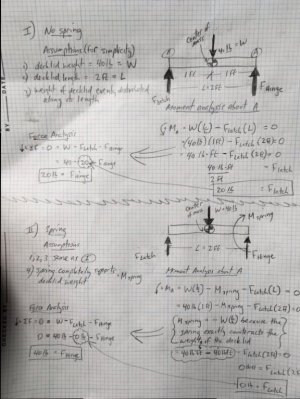 I) No spring
Assumptions (for simplicity)
1) decklid weight = 40 lb = W
2) decklid length = 2 ft = L
3) weight of decklid evenly distributed
along its length
center of
mass
40 lb = W
1 ft
1 ft
L = 2 ft
F latch
F hinge
Moment analysis about A
ΣM_A = W(L/2) - F latch (L) = 0
= (40 lb)(1 ft) - F latch (2 ft) = 0
= 40 lb·ft - F latch (2 ft) = 0
40 lb·ft
2 ft
= F latch
20 lb = F latch
Force Analysis
ΣF = 0 = W - F latch - F hinge
= 40 - (20) - F hinge
20 lb = F hinge
II) Spring
Assumptions
1, 2, 3 same as (I)
4) spring completely supports
decklid weight
center
of mass
W = 40 lb
M spring
L = 2 ft
F latch
F hinge
M spring
Moment Analysis about A
ΣM_A = W(L/2) - M spring - F latch (L) = 0
= 40 lb (1 ft) - M spring - F latch (2 ft) = 0
M spring = W(L/2) because the
spring exactly counteracts the
weight of the decklid
= 40 lb·ft - 40 lb·ft - F latch (2 ft) = 0
0 lb·ft = F latch (2 ft)
0 lb = F latch
Force Analysis
ΣF = 0 = W - F latch - F hinge
0 = 40 lb - 0 lb - F hinge
40 lb = F hinge